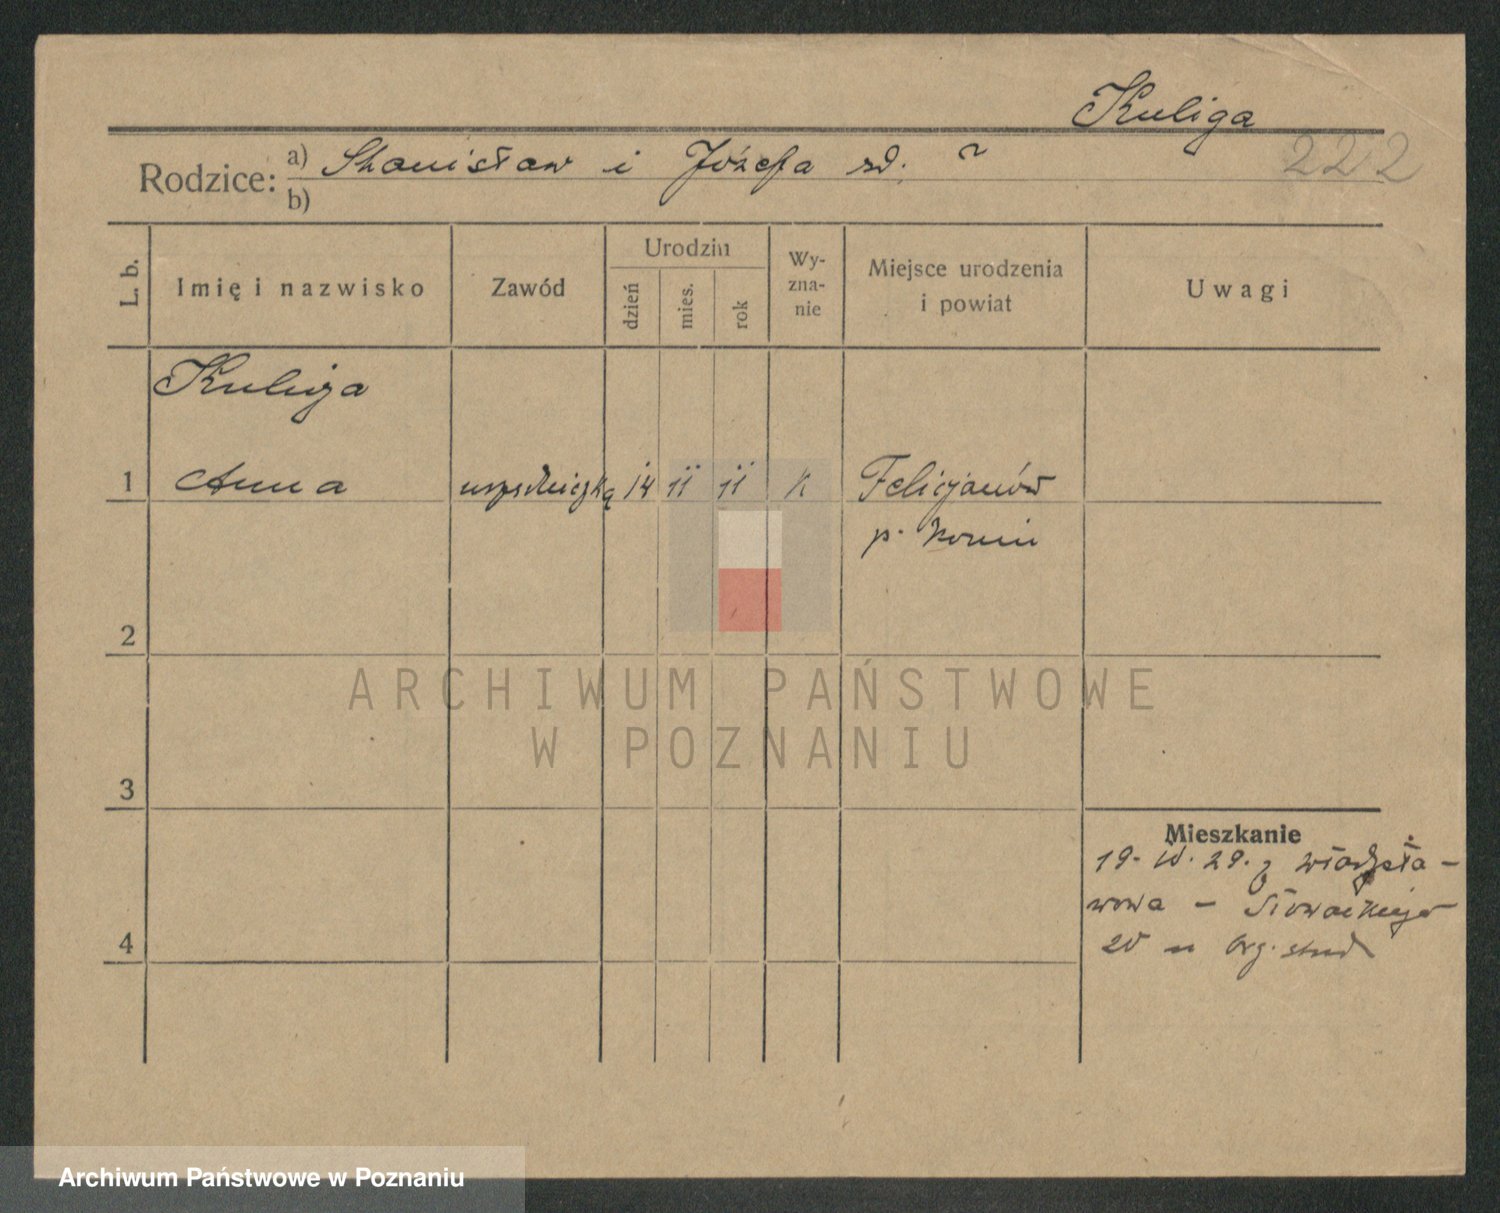 Kuliga
222
Rodzice: a) Stanisław i Józefa zd. ?
b)
L. b.
Imię i nazwisko
Zawód
Urodzin
dzień
mies.
rok
Wy-
zna-
nie
Miejsce urodzenia
i powiat
Uwagi
Kuliga
1 Anna 14 11 11 k Felicjanów
p. Konin
2
ARCHIWUM PAŃSTWOWE
W POZNANIU
3
Mieszkanie
19. IV. 29. z Władysła-
wowa - Słowackiego
20 u
4
Archiwum Państwowe w Poznaniu